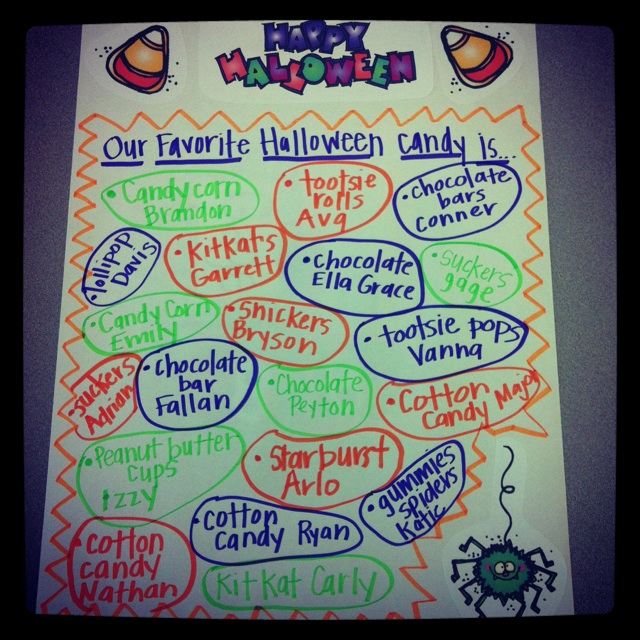 HAPPY
HALLOWEEN
Our Favorite Halloween candy is...
• Candy corn
Brandon
• tootsie
rolls
Ava
• chocolate
bars
Conner
• lollipop
Davis
• Kitkats
Garrett
• chocolate
Ella Grace
• suckers
gage
• Candy Corn
Emily
• snickers
Bryson
• tootsie pops
Vanna
• suckers
Adrian
• chocolate
bar
Fallan
• Chocolate
Peyton
• Cotton
Candy Major
• Peanut butter
cups
Izzy
• Starburst
Arlo
• gummies
spiders
Katie
• cotton
candy Ryan
• cotton
candy
Nathan
Kit Kat Carly